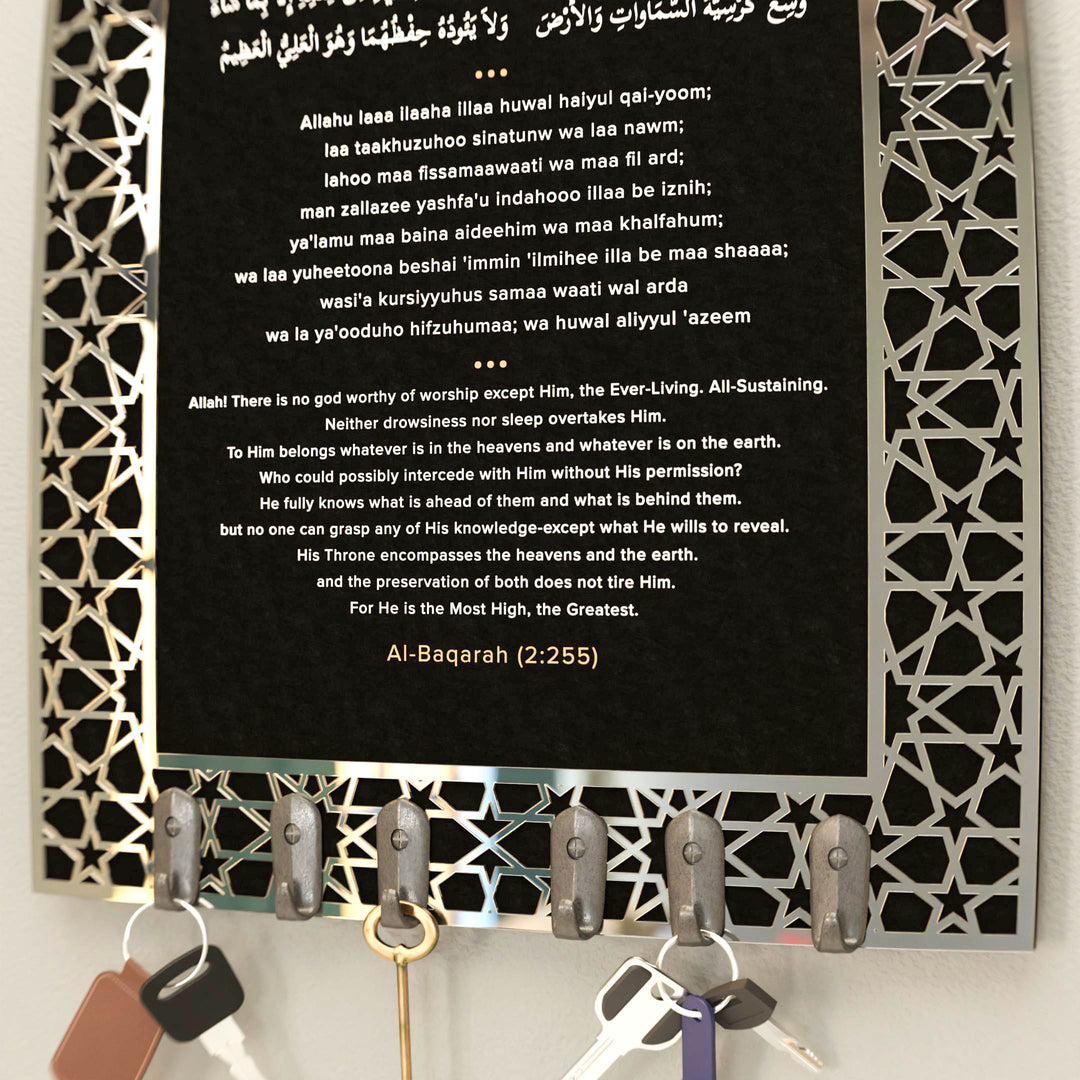 وَسِعَ كُرْسِيُّهُ السَّمَاوَاتِ وَالْأَرْضَ وَلاَ يَئُودُهُ حِفْظُهُمَا وَهُوَ الْعَلِيُّ الْعَظِيمُ
Allahu laaa ilaaha illaa huwal haiyul qai-yoom;
laa taakhuzuhoo sinatunw wa laa nawm;
lahoo maa fissamaawaati wa maa fil ard;
man zallazee yashfa'u indahooo illaa be iznih;
ya'lamu maa baina aideehim wa maa khalfahum;
wa laa yuheetoona beshai 'immin 'ilmihee illa be maa shaaaa;
wasi'a kursiyyuhus samaa waati wal arda
wa la ya'ooduho hifzuhumaa; wa huwal aliyyul 'azeem
Allah! There is no god worthy of worship except Him, the Ever-Living. All-Sustaining.
Neither drowsiness nor sleep overtakes Him.
To Him belongs whatever is in the heavens and whatever is on the earth.
Who could possibly intercede with Him without His permission?
He fully knows what is ahead of them and what is behind them.
but no one can grasp any of His knowledge-except what He wills to reveal.
His Throne encompasses the heavens and the earth.
and the preservation of both does not tire Him.
For He is the Most High, the Greatest.
Al-Baqarah (2:255)